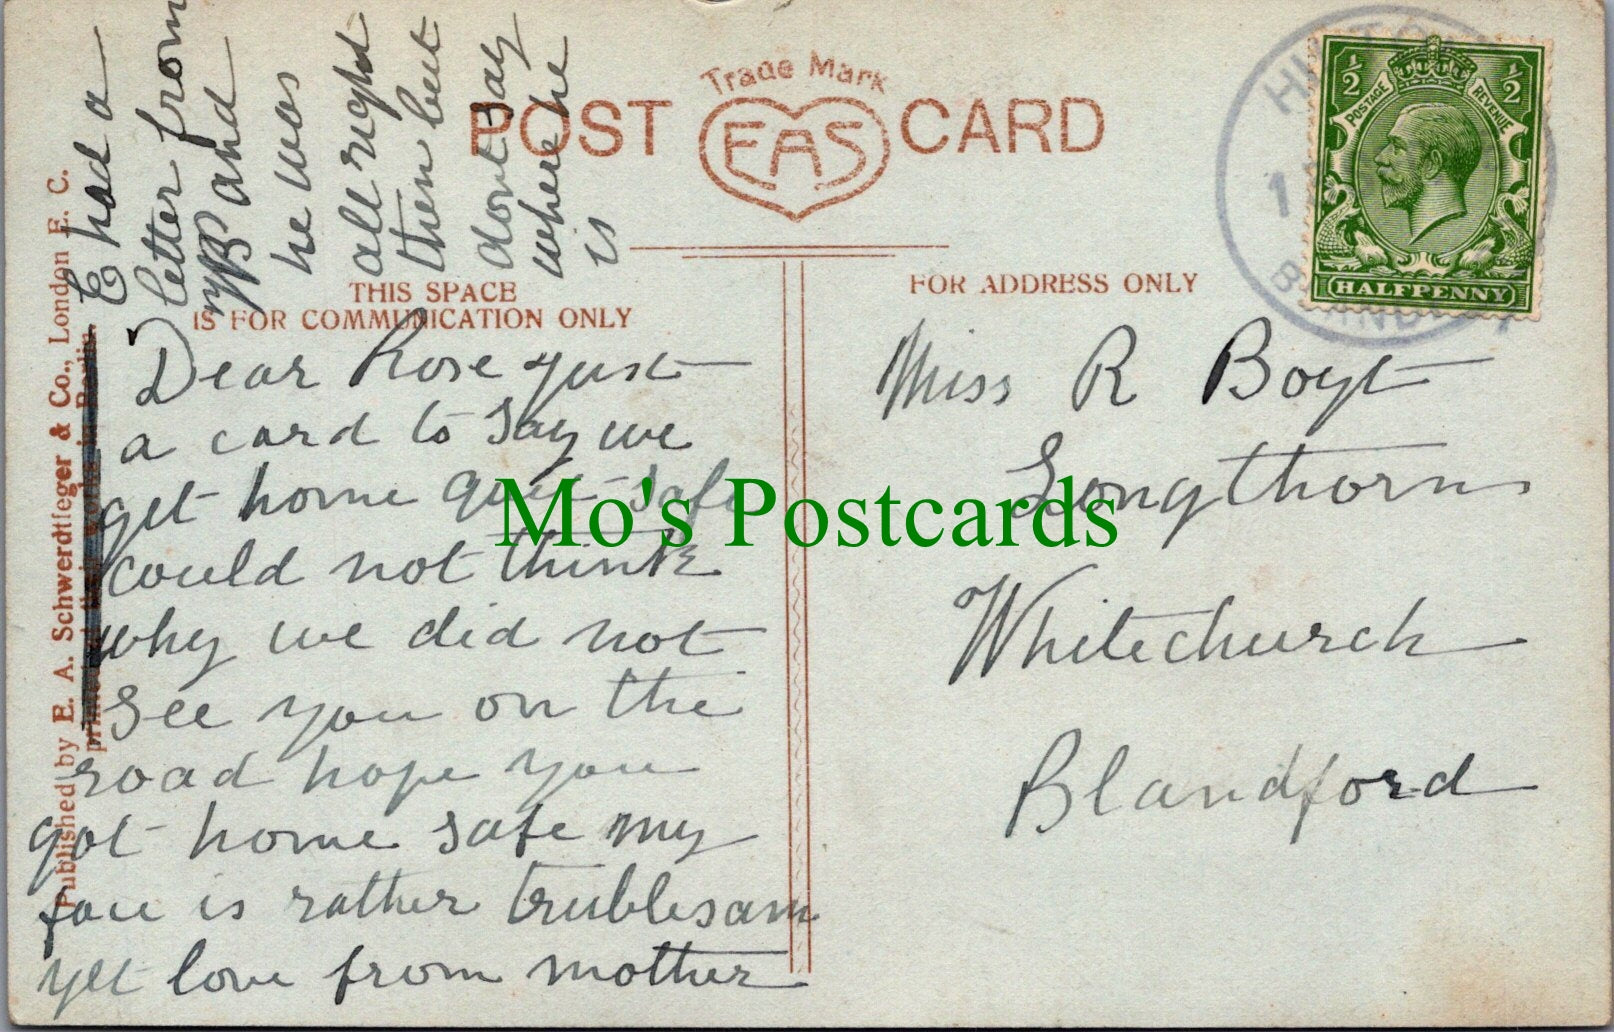 Trade Mark
POST CARD
EAS
THIS SPACE
IS FOR COMMUNICATION ONLY
FOR ADDRESS ONLY
½ ½
POSTAGE REVENUE
HALFPENNY
Published by E. A. Schwerdtfeger & Co., London E. C.
Dear Rose just
a card to say we
get home quit safe
could not think
why we did not
see you on the
road hope you
got home safe my
face is rather trublesam
yet love from mother
E had a
letter from
and
he was
all right
then but
dont say
where he
is
Miss R Boyt
Longthorns
Whitechurch
Blandford
Mo's Postcards